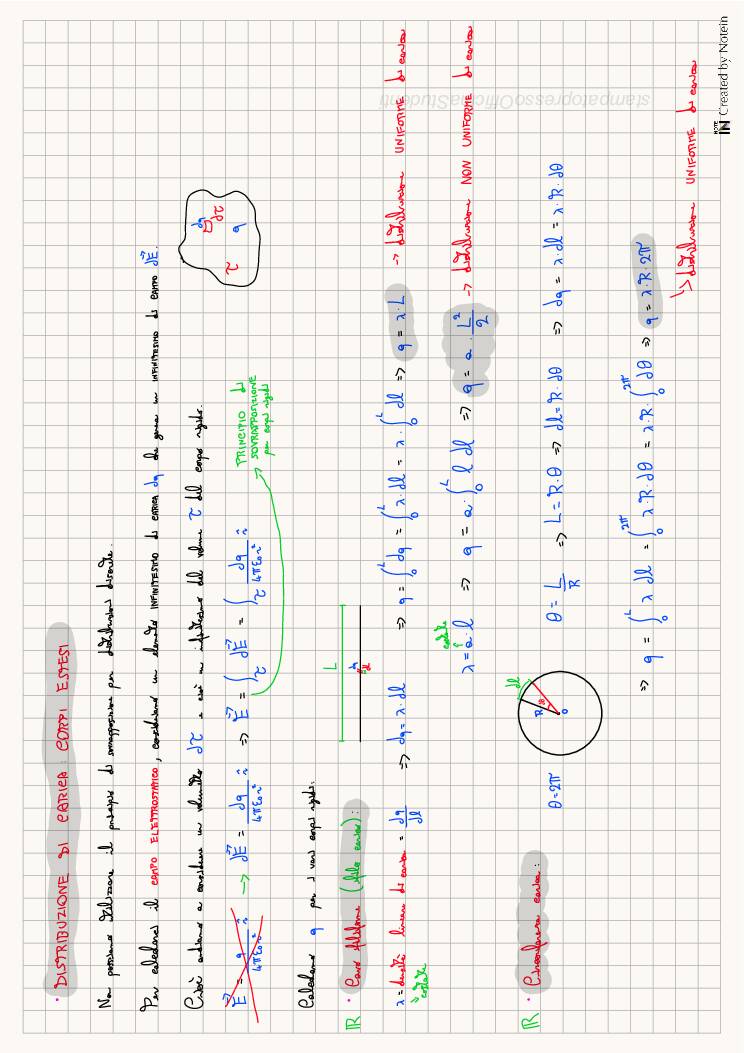 · DISTRIBUZIONE DI CARICA: CORPI ESTESI
Non possiamo utilizzare il principio di sovrapposizione per distribuzioni discrete.
Per calcolarci il CAMPO ELETTROSTATICO, consideriamo un elemento INFINITESIMO DI CARICA dq che genera un INFINITESIMO DI CAMPO dE⃗.
Cioè andiamo a considerare un volumetto dτ e cioè un infinitesimo del volume τ del corpo rigido.
τ dq dτ q
E⃗ = q/(4πε₀r²) r̂ → dE⃗ = dq/(4πε₀r²) r̂ => E⃗ = ∫_τ dE⃗ = ∫_τ dq/(4πε₀r²) r̂
→ PRINCIPIO di
SOVRAPPOSIZIONE
per corpi rigidi
Calcoliamo q per i vari corpi rigidi:
ℝ · Caso filiforme (filo carico):
L
dq
dl
λ = densità lineare di carica = dq/dl => dq = λ·dl => q = ∫₀ᴸ dq = ∫₀ᴸ λ·dl = λ·∫₀ᴸ dl => q = λ·L → distribuzione UNIFORME di carica
costante
costante
λ = a·l => q = a·∫₀ᴸ l dl => q = a·L²/2 → distribuzione NON UNIFORME di carica
ℝ · Circonferenza carica:
θ = 2π
R dθ dl O
θ = L/R => L = R·θ => dl = R·dθ => dq = λ·dl = λ·R·dθ
=> q = ∫₀ᴸ λ dl = ∫₀²π λ·R·dθ = λ·R·∫₀²π dθ => q = λ·R·2π
↳ distribuzione UNIFORME di carica
stampatopressoOfficinaStudenti
NOTE IN Created by Notein